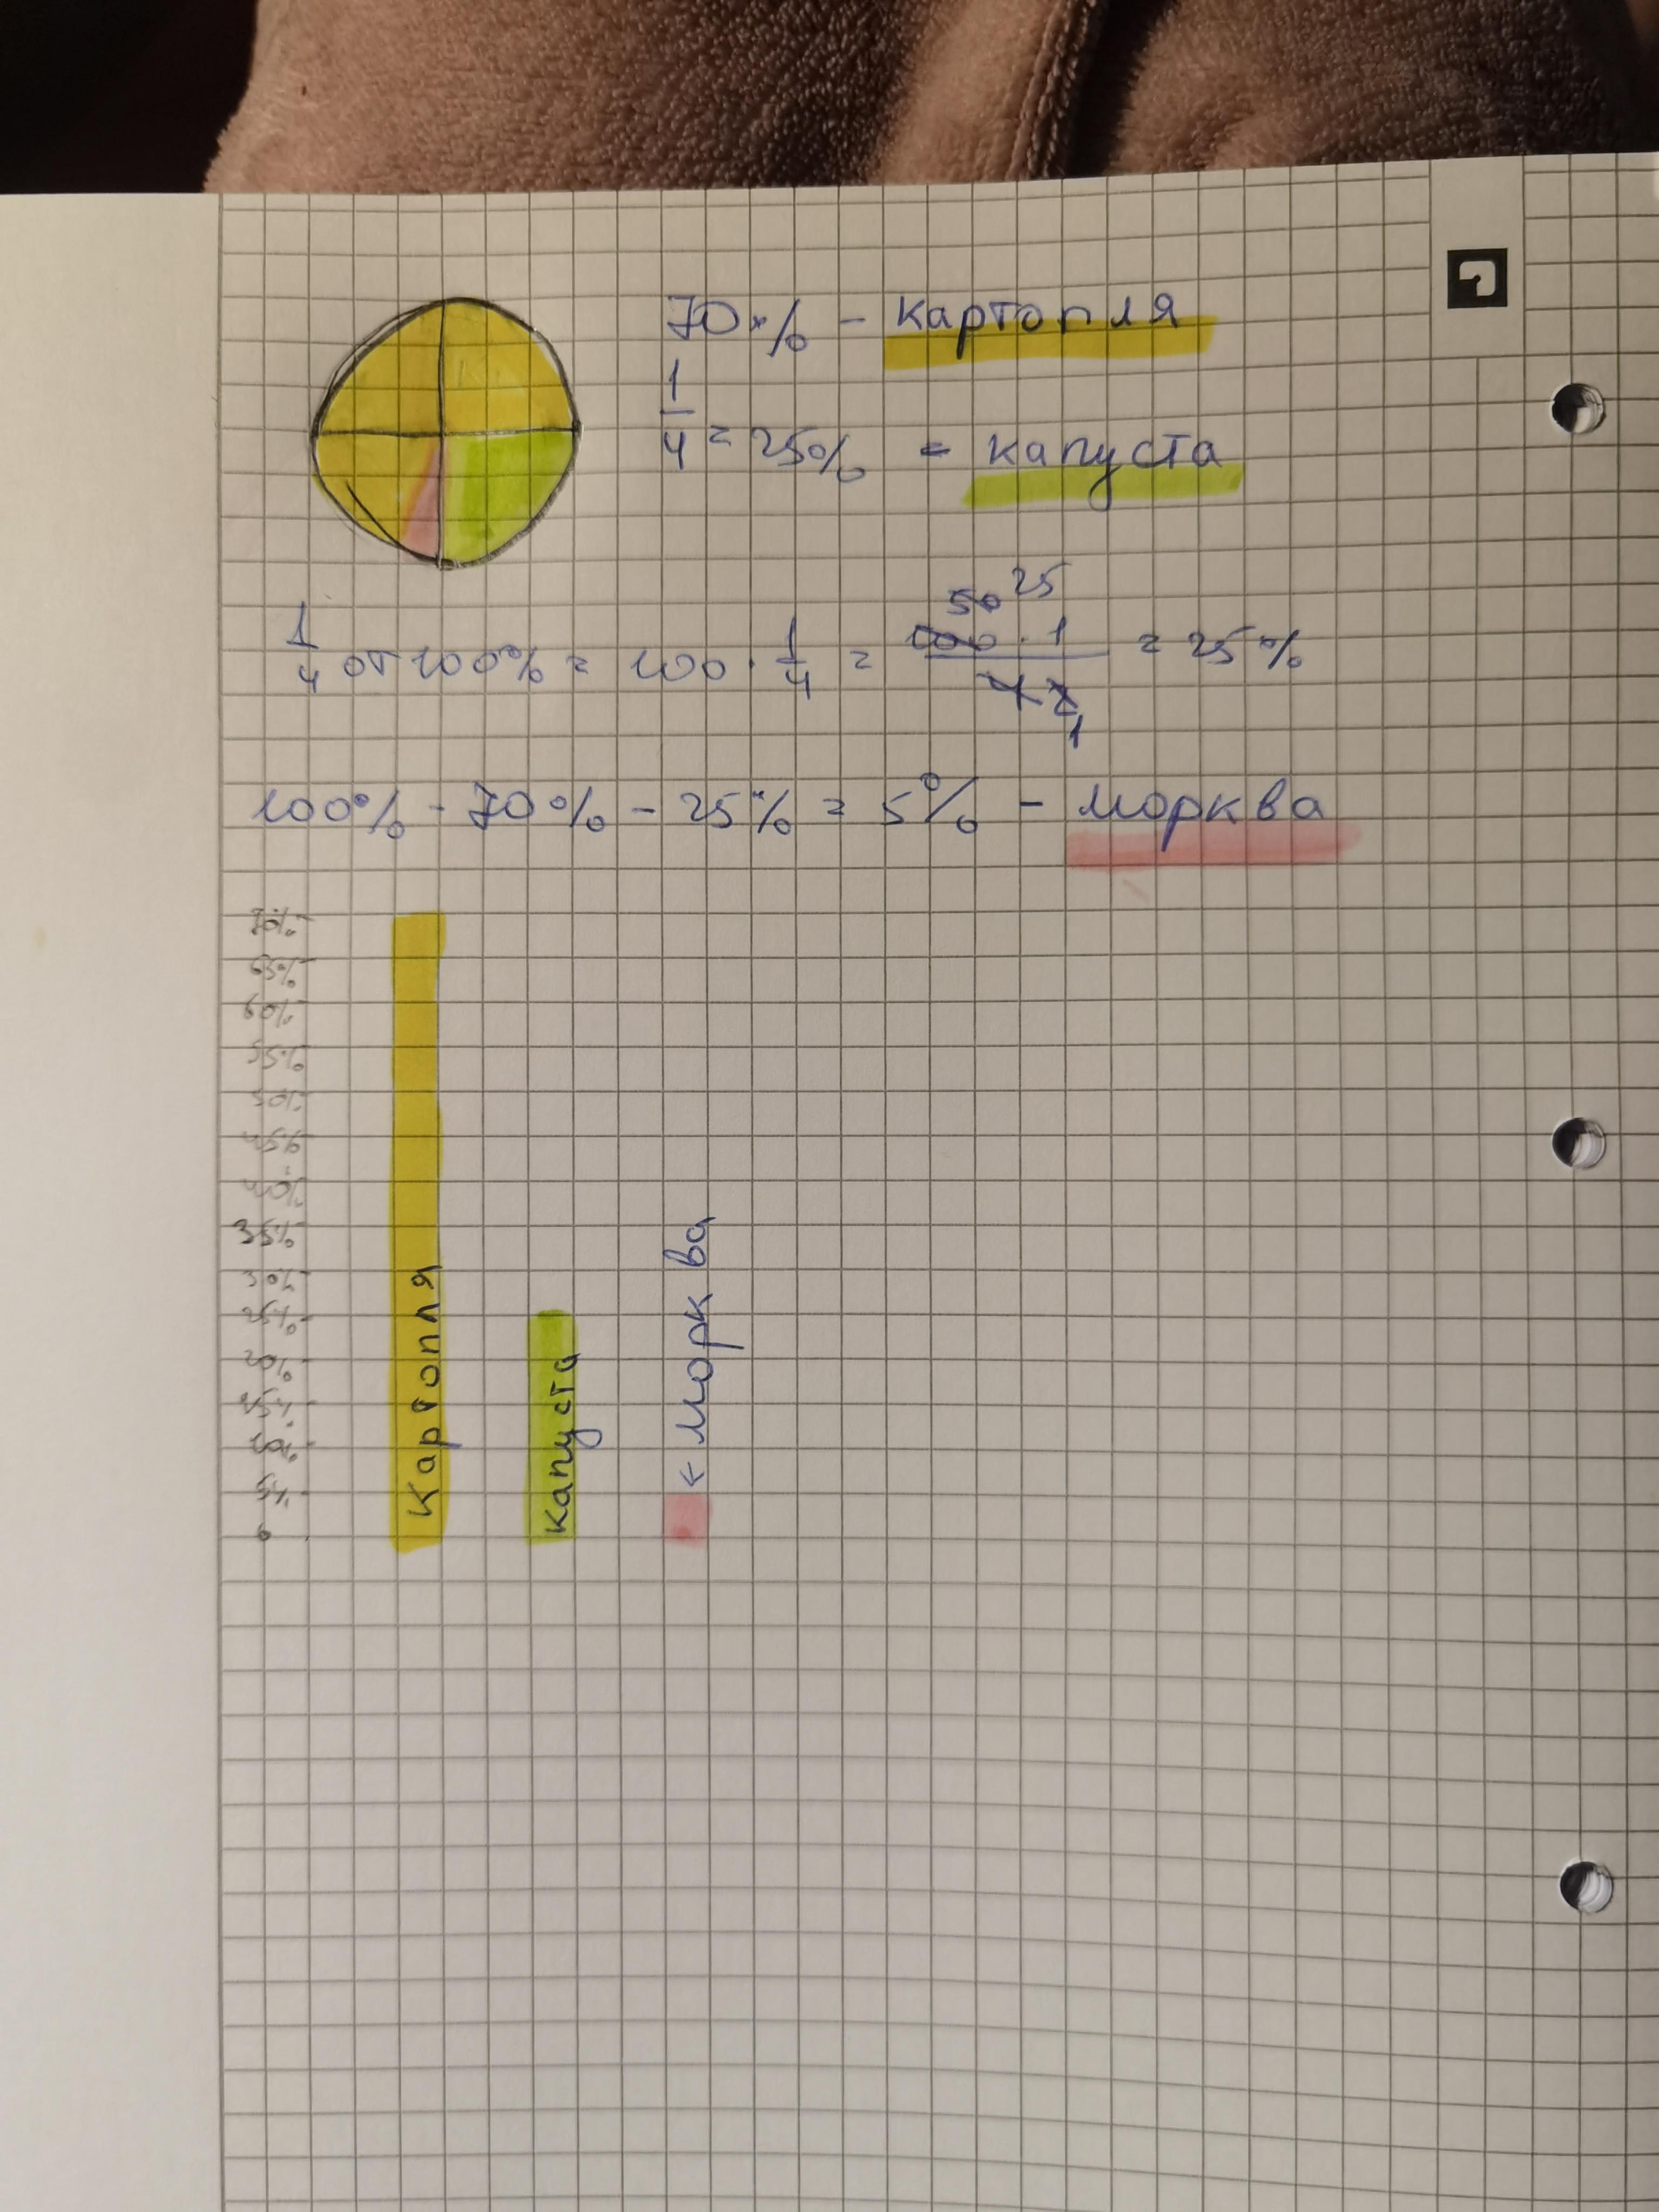 70% - картопля
1/4 = 25% = капуста
1/4 от 100% = 100 · 1/4 = 50 25 100 · 1 / 4 2 1 = 25%
100% - 70% - 25% = 5% - морква
70%
65%
60%
55%
50%
45%
40%
35%
30%
25%
20%
15%
10%
5%
0
Картопля
капуста
← морква